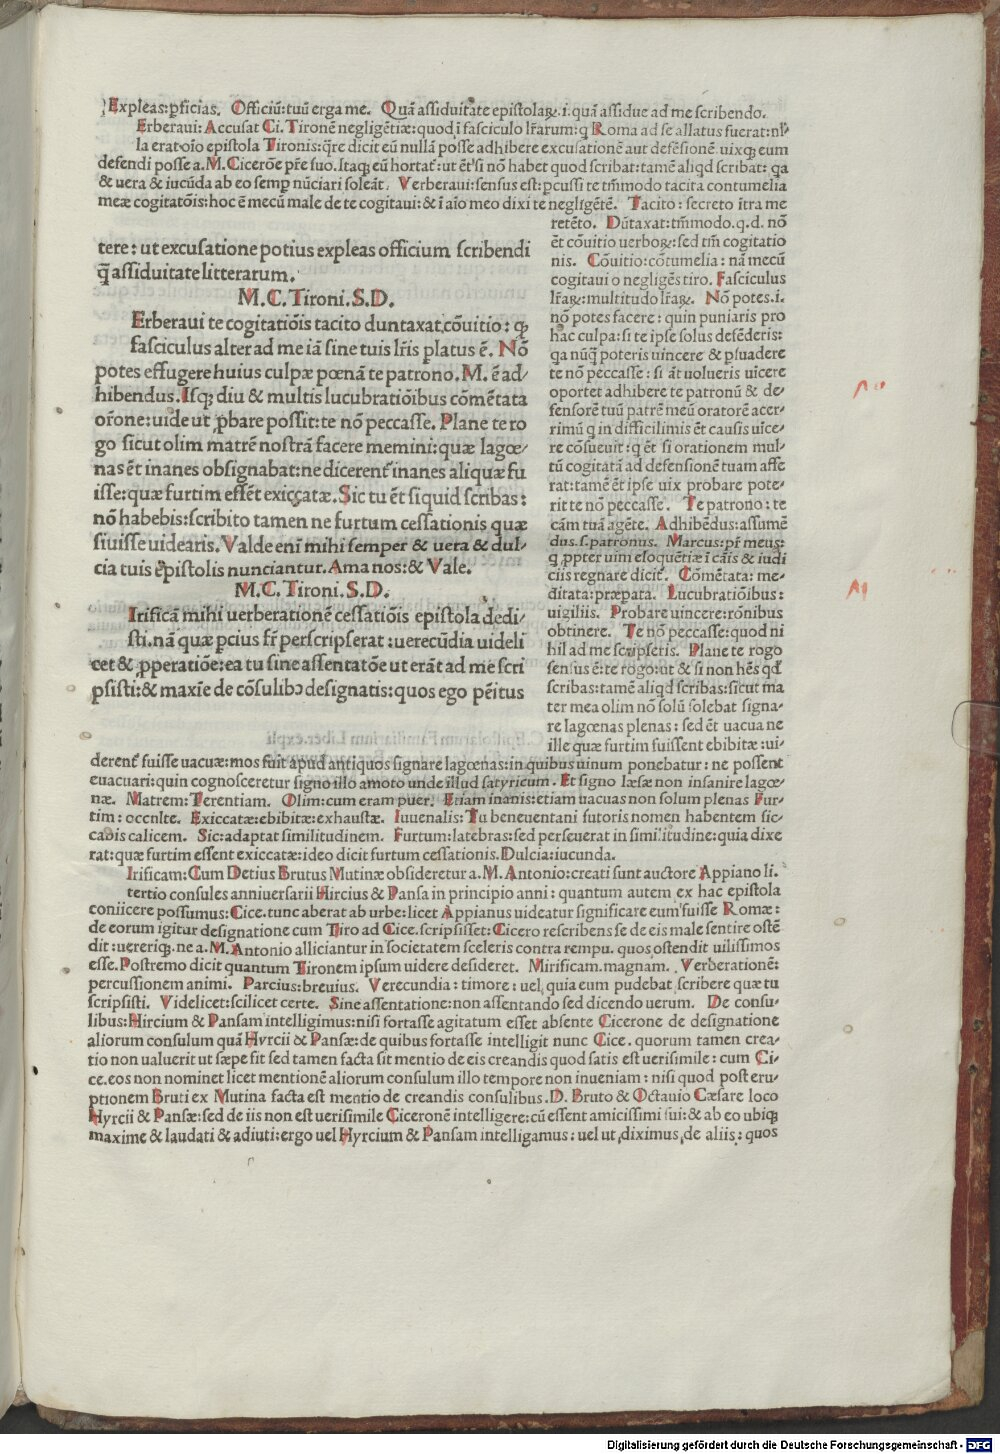 Expleas:ꝑficias. Officiū:tuū erga me. Quā assiduitate epistolaꝝ.i.quā assidue ad me scribendo.
Erberaui: Accusat Ci. Tironē negligētiæ:quod ī fasciculo lr̄arum:q Roma ad se allatus fuerat:nl̄
la erat oīo epistola Tironis:q̄re dicit eū nullā posse adhibere excusationē aut defēsionē uixqꝫ eum
defendi posse a.M.Cicerōe pr̄e suo.Itaqꝫ eū hortat̄:ut ēt si nō habet quod scribat:tamē aliqd scribat: qa
& uera & iucūda ab eo semꝑ nūciari soleāt. Verberaui:sensus est:ꝑcussi te tm̄modo tacita contumelia
meæ cogitatōis:hoc ē mecū male de te cogitaui:& ī aīo meo dixi te negligētē. Tacito: secreto ītra me
tere: ut excusatione potius expleas officium scribendi
q̄ assiduitate litterarum.
M.C.Tironi.S.D.
Erberaui te cogitatiōis tacito duntaxat cōuitio: qꝫ
fasciculus alter ad me iā sine tuis lr̄is ꝑlatus ē. Nō
potes effugere huius culpæ pœnā te patrono.M.ē ad/
hibendus.Isqꝫ diu & multis lucubratiōibus cōmētata
or̄one:uide ut ꝓbare possit:te nō peccasse. Plane te ro
go sicut olim matrē nostrā facere memini:quæ lagœ/
nas ēt inanes obsignabat:ne dicerent̄ inanes aliquæ fu
isse:quæ furtim essēt exiccatæ.Sic tu ēt si quid scribas:
nō habebis:scribito tamen ne furtum cessationis quæ
siuisse uidearis.Valde enī mihi semper & uera & dul/
cia tuis epistolis nunciantur.Ama nos:& Vale.
M.C.Tironi.S.D.
Irificā mihi uerberationē cessatiōis epistola dedi/
sti.nā quæ ꝑcius fr̄ perscripserat:uerecūdia uideli
cet & ꝓperatiōe:ea tu sine assentatōe ut erāt ad me scri
psisti:& maxīe de cōsulibꝫ designatis:quos ego pēitus
retēto. Dūtaxat:tm̄modo.q.d. nō
ēt cōuitio uerboꝝ:sed tm̄ cogitatio
nis. Cōuitio:cōtumelia: nā mecū
cogitaui o negligēs tiro. Fasciculus
lr̄aꝝ:multitudo lr̄aꝝ. Nō potes.i.
nō potes facere: quin puniaris pro
hac culpa:si te ipse solus defēderis:
qa nūq̄ poteris uincere & ꝑsuadere
te nō peccasse:si āt uolueris uīcere
oportet adhibere te patronū & de/
fensorē tuū patrē meū oratorē acer/
rimū q in difficilimis ēt causis uīce/
re cōsueuit:q ēt si orationem mul/
tū cogitatā ad defensionē tuam affe
rat:tamē ēt ipse uix probare pote/
rit te nō peccasse. Te patrono:te
cām tuā agēte. Adhibēdus:assumē
dus.s.patronus. Marcus:pr̄ meus:
q ꝓpter uim eloquētiæ ī cāis & iudi
ciis regnare dicit̄. Cōmētata: me/
ditata:præpata. Lucubratiōibus:
uigiliis. Probare uincere:rōnibus
obtinere. Te nō peccasse:quod ni
hil ad me scripsetis. Plane te rogo
sensus ē:te rogo:ut & si non hēs qd
scribas:tamē aliqd scribas:sicut ma
ter mea olim nō solū solebat signa/
re lagœnas plenas: sed ēt uacua ne
ille quæ furtim fuissent ebibitæ:ui/
derent̄ fuisse uacuæ:mos fuit apud antiquos signare lagœnas:in quibus uinum ponebatur: ne possent
euacuari:quin cognosceretur signo illo amoto unde illud satyricum. Et signo læsæ non insanire lagœ/
næ. Matrem:Terentiam. Olim:cum eram puer. Etiam inanis:etiam uacuas non solum plenas Fur/
tim:occnlte. Exiccatæ:ebibitæ:exhaustæ. Iuuenalis: Tu beneuentani sutoris nomen habentem sic/
cabis calicem. Sic:adaptat similitudinem. Furtum:latebras:sed perseuerat in similitudine:quia dixe
rat:quæ furtim essent exiccatæ:ideo dicit furtum cessationis.Dulcia:iucunda.
Irificam:Cum Detius Brutus Mutinæ obsideretur a.M.Antonio:creati sunt auctore Appiano li.
tertio consules anniuersarii Hircius & Pansa in principio anni: quantum autem ex hac epistola
coniicere possumus:Cice.tunc aberat ab urbe:licet Appianus uideatur significare eum fuisse Romæ:
de eorum igitur designatione cum Tiro ad Cice.scripsisset:Cicero rescribens se de eis male sentire ostē
dit:uereriqꝫ ne a.M.Antonio alliciantur in societatem sceleris contra rempu. quos ostendit uilissimos
esse.Postremo dicit quantum Tironem ipsum uidere desideret. Mirificam.magnam. Verberationē:
percussionem animi. Parcius:breuius. Verecundia: timore: uel quia eum pudebat scribere quæ tu
scripsisti. Videlicet:scilicet certe. Sine assentatione:non assentando sed dicendo uerum. De consu/
libus:Hircium & Pansam intelligimus:nisi fortasse agitatum esset absente Cicerone de designatione
aliorum consulum quā Hyrcii & Pansæ:de quibus fortasse intelligit nunc Cice. quorum tamen crea/
tio non ualuerit ut sæpe fit sed tamen facta sit mentio de eis creandis quod satis est uerisimile: cum Ci/
ce.eos non nominet licet mentionē aliorum consulum illo tempore non inueniam: nisi quod post eru/
ptionem Bruti ex Mutina facta est mentio de creandis consulibus.D. Bruto & Octauio Cæsare loco
Hyrcii & Pansæ:sed de iis non est uerisimile Ciceronē intelligere:cū essent amicissimi sui:& ab eo ubiqꝫ
maxime & laudati & adiuti:ergo uel Hyrcium & Pansam intelligamus:uel ut diximus de aliis: quos
Digitalisierung gefördert durch die Deutsche Forschungsgemeinschaft - DFG